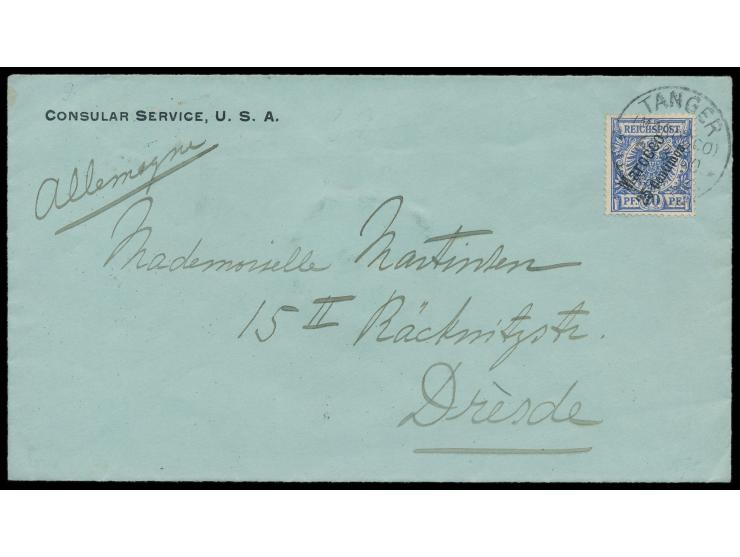 CONSULAR SERVICE, U. S. A.
TANGER
REICHSPOST
Marocco
25 Centimos
PF 20 PF
Allemagne
Mademoiselle Martinsen
15 II Räcknitzstr.
Dresde